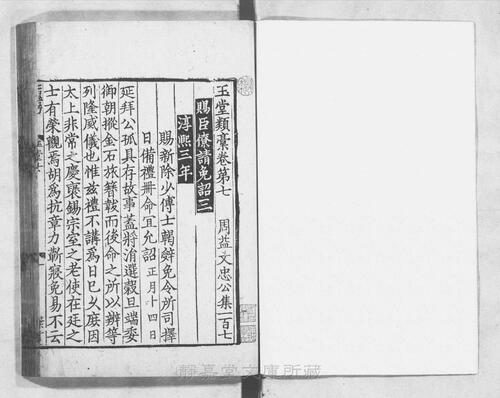 玉堂類藁卷第七 周益文忠公集一百七
賜臣僚請免詔三
淳熙三年
賜新除少傅士輵辭免令所司擇
日備禮冊命宜允詔 正月十四日
延拜公孤具存故事蓋將涓選穀旦端委
御朝摐金石旅簪韍而後命之所以辨等
列隆威儀也惟兹禮不講為日已久庻因
太上非常之慶褒錫宗室之老使在廷之
士有榮觀焉胡為抗章力蘄寢免易不云
靜嘉堂文庫所藏